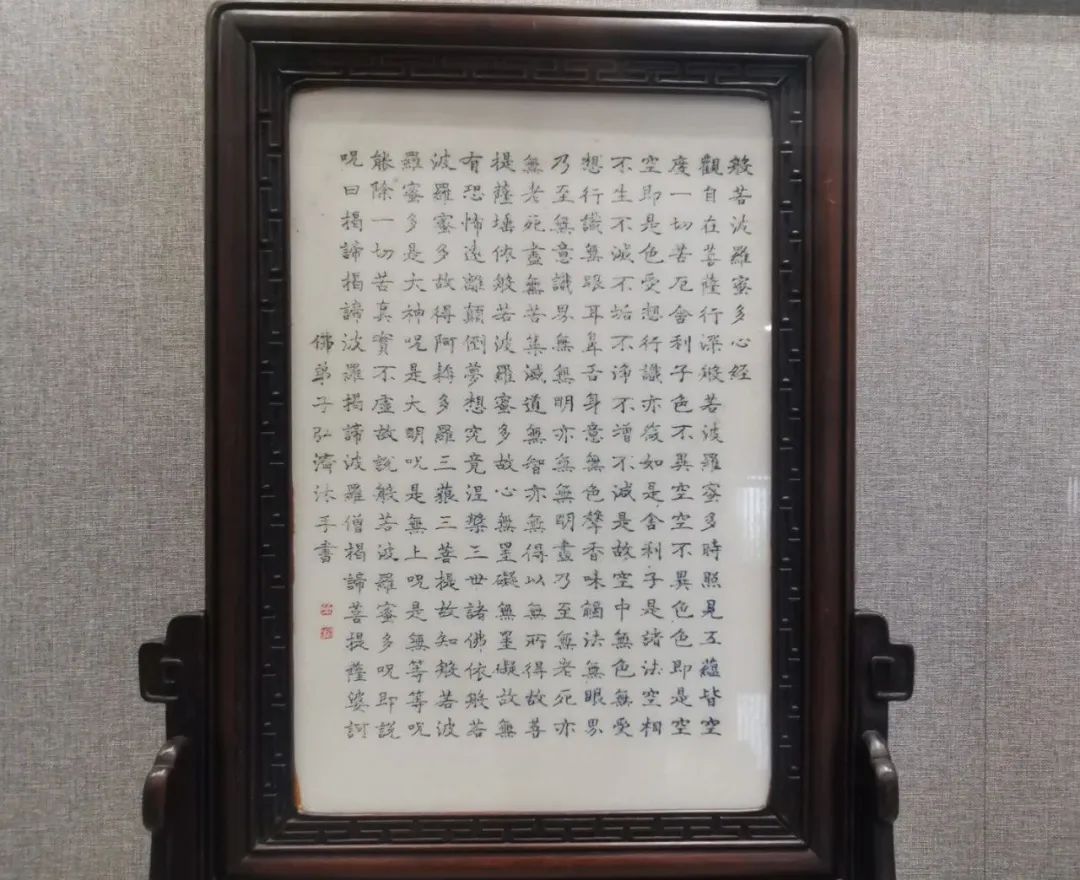 般若波羅蜜多心經
觀自在菩薩行深般若波羅蜜多時照見五蘊皆空
度一切苦厄舍利子色不異空空不異色色即是空
空即是色受想行識亦復如是舍利子是諸法空相
不生不滅不垢不淨不增不減是故空中無色無受
想行識無眼耳鼻舌身意無色聲香味觸法無眼界
乃至無意識界無無明亦無無明盡乃至無老死亦
無老死盡無苦集滅道無智亦無得以無所得故菩
提薩埵依般若波羅蜜多故心無罣礙無罣礙故無
有恐怖遠離顛倒夢想究竟涅槃三世諸佛依般若
波羅蜜多故得阿耨多羅三藐三菩提故知般若波
羅蜜多是大神呪是大明呪是無上呪是無等等呪
能除一切苦真實不虛故說般若波羅蜜多呪即說
呪曰揭諦揭諦波羅揭諦波羅僧揭諦菩提薩婆訶
佛弟子弘濟沐手書